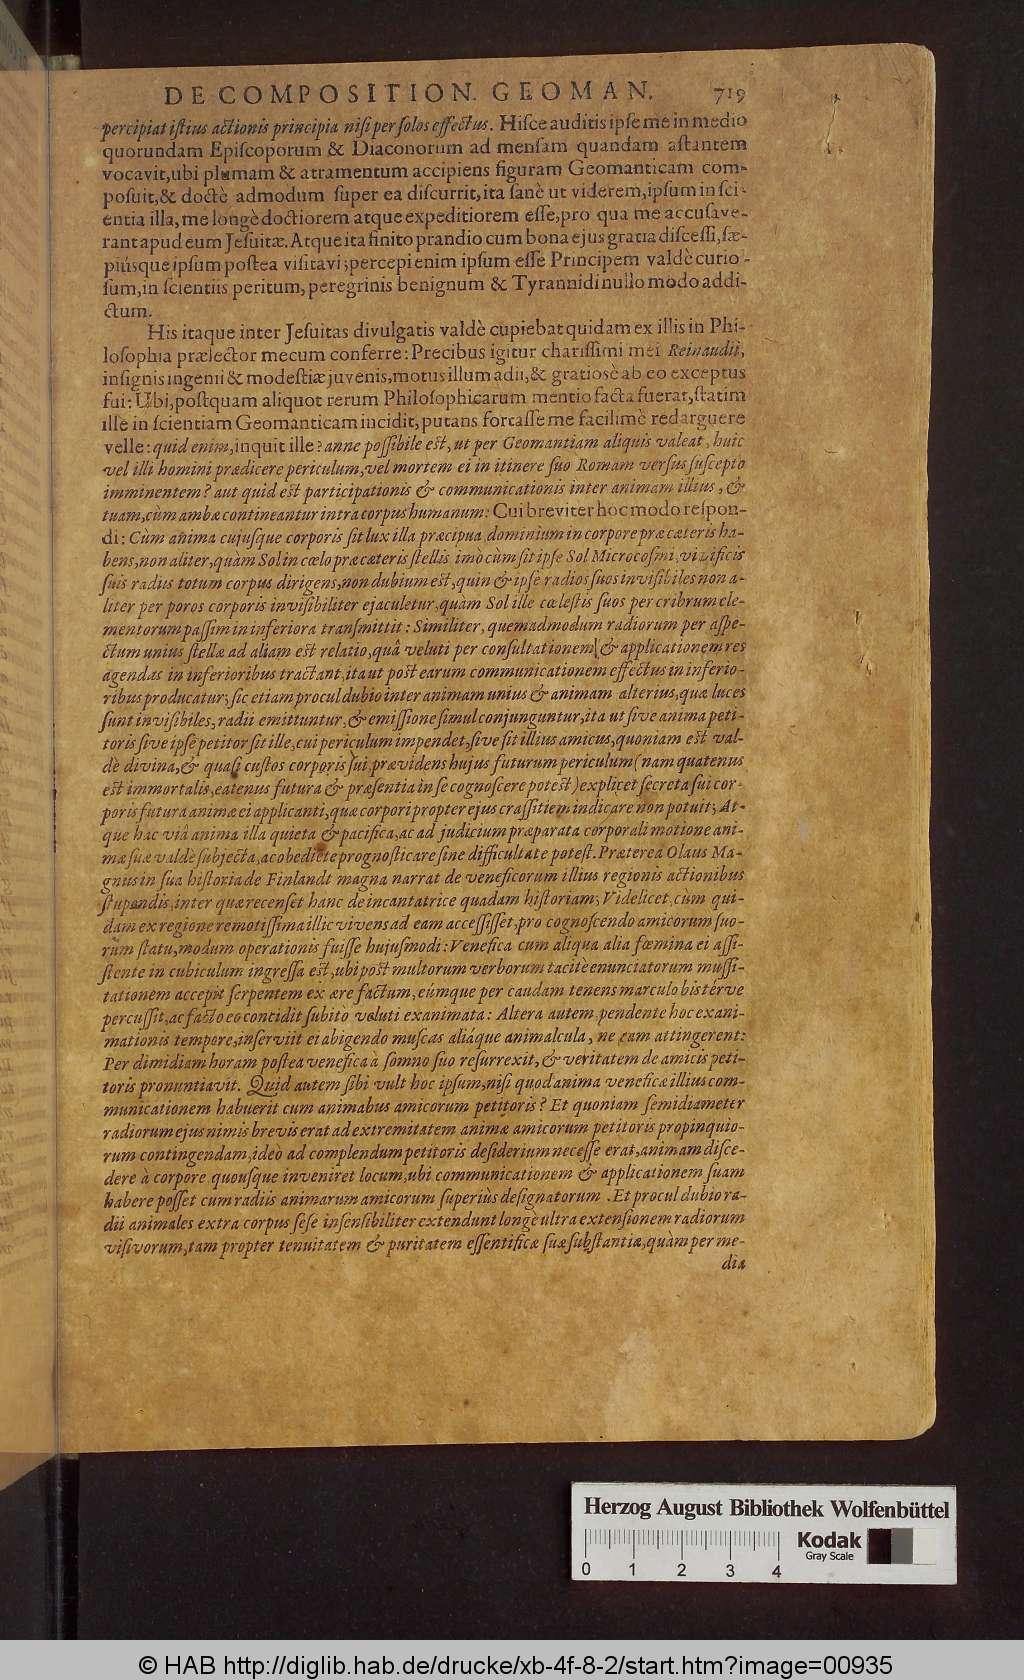 DE COMPOSITION. GEOMAN. 719
percipiat iſtius actionis principia niſi per ſolos effectus. Hiſce auditis ipſe me in medio
quorundam Epiſcoporum & Diaconorum ad menſam quandam aſtantem
vocavit, ubi plumam & atramentum accipiens figuram Geomanticam com-
poſuit, & doctè admodum ſuper ea diſcurrit, ita ſanè ut viderem, ipſum in ſci-
entia illa, me longè doctiorem atque expeditiorem eſſe, pro qua me accuſave-
rant apud eum Jeſuitæ. Atque ita finito prandio cum bona ejus gratia diſceſſi, ſæ-
piúsque ipſum poſtea viſitavi; percepi enim ipſum eſſe Principem valdè curio-
ſum, in ſcientiis peritum, peregrinis benignum & Tyrannidi nullo modo addi-
ctum.
His itaque inter Jeſuitas divulgatis valdè cupiebat quidam ex illis in Phi-
loſophia prælector mecum conferre: Precibus igitur chariſſimi mei Reinaudii,
inſignis ingenii & modeſtiæ juvenis, motus illum adii, & gratiosè ab eo exceptus
fui: Ubi, poſtquam aliquot rerum Philoſophicarum mentio facta fuerat, ſtatim
ille in ſcientiam Geomanticam incidit, putans forcaſſe me facilimè redarguere
velle: quid enim, inquit ille? anne poſſibile est, ut per Geomantiam aliquis valeat, huic
vel illi homini prædicere periculum, vel mortem ei in itinere ſuo Romam verſus ſuſcepto
imminentem? aut quid est participationis & communicationis inter animam illius, &
tuam, cùm ambæ contineantur intra corpus humanum: Cui breviter hoc modo reſpon-
di: Cùm anima cujuſque corporis ſit lux illa præcipua, dominium in corpore præ cæteris ha-
bens, non aliter, quàm Sol in cœlo præ cæteris ſtellis imò cùm ſit ipſe Sol Microcoſmi, vivificis
ſuis radiis totum corpus dirigens, non dubium est, quin & ipſe radios ſuos inviſibiles non a-
liter per poros corporis inviſibiliter ejaculetur, quàm Sol ille cœleſtis ſuos per cribrum ele-
mentorum paſſim in inferiora tranſmittit: Similiter, quemadmodum radiorum per aſpe-
ctum unius ſtellæ ad aliam est relatio, quâ veluti per conſultationem & applicationem res
agendas in inferioribus tractant, ita ut post earum communicationem effectus in inferio-
ribus producatur; ſic etiam procul dubio inter animam unius & animam alterius, quæ luces
ſunt inviſibiles, radii emittuntur, & emiſſione ſimul conjunguntur, ita ut ſive anima peti-
toris ſive ipſe petitor ſit ille, cui periculum impendet, ſive ſit illius amicus, quoniam est val-
dè divina, & quaſi cuſtos corporis ſui, prævidens hujus futurum periculum (nam quatenus
est immortalis, eatenus futura & præſentia in ſe cognoſcere potest) explicet ſecreta ſui cor-
poris futura animæ ei applicanti, quæ corpori propter ejus craſſitiem indicare non potuit; At-
que hac viâ anima illa quieta & pacifica, ac ad judicium præparata corporali motione ani-
mæ ſuæ valdè ſubjecta, ac obediẽte prognoſticare ſine difficultate poteſt. Præterea Olaus Ma-
gnus in ſua hiſtoria de Finlandt magna narrat de veneficorum illius regionis actionibus
ſtupendis, inter quæ recenſet hanc de incantatrice quadam hiſtoriam; Videlicet, cùm qui-
dam ex regione remotiſſima illic vivens ad eam acceſſiſſet, pro cognoſcendo amicorum ſuo-
rum ſtatu, modum operationis fuiſſe hujuſmodi: Venefica cum aliqua alia fœmina ei aſſi-
ſtente in cubiculum ingreſſa est, ubi post multorum verborum tacitè enunciatorum muſſi-
tationem accepit ſerpentem ex ære factum, eúmque per caudam tenens marculo bis térve
percuſſit, ac facto eo concidit ſubitò veluti exanimata: Altera autem pendente hoc exani-
mationis tempore, inſerviit ei abigendo muſcas aliáque animalcula, ne eam attingerent:
Per dimidiam horam poſtea venefica à ſomno ſuo reſurrexit, & veritatem de amicis peti-
toris pronuntiavit. Quid autem ſibi vult hoc ipſum, niſi quod anima veneficæ illius com-
municationem habuerit cum animabus amicorum petitoris? Et quoniam ſemidiameter
radiorum ejus nimis brevis erat ad extremitatem animæ amicorum petitoris propinquio-
rum contingendam, ideò ad complendum petitoris deſiderium neceſſe erat, animam diſce-
dere à corpore quouſque inveniret locum, ubi communicationem & applicationem ſuam
habere poſſet cum radiis animarum amicorum ſuperiùs deſignatorum. Et procul dubio ra-
dii animales extra corpus ſeſe inſenſibiliter extendunt longè ultra extenſionem radiorum
viſivorum, tam propter tenuitatem & puritatem eſſentificæ ſuæ ſubſtantiæ, quàm per me-
dia
Herzog August Bibliothek Wolfenbüttel
Kodak
Gray Scale
0 1 2 3 4
© HAB http://diglib.hab.de/drucke/xb-4f-8-2/start.htm?image=00935